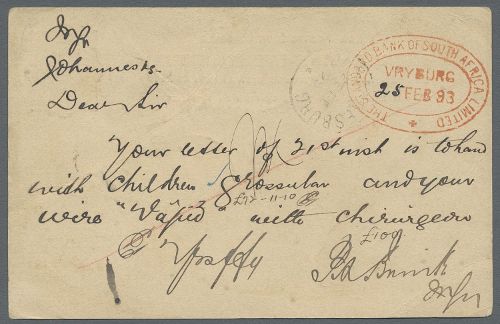 Mgr
Johannesbg
THE STANDARD BANK OF SOUTH AFRICA LIMITED
VRYBURG
25 FEB 93
SBURG
Dear Sir
Your letter of 21st inst is to hand
with children Grossular and your
£72-11-10
wire "Vapid" with chirurgeon
£100
Mgr